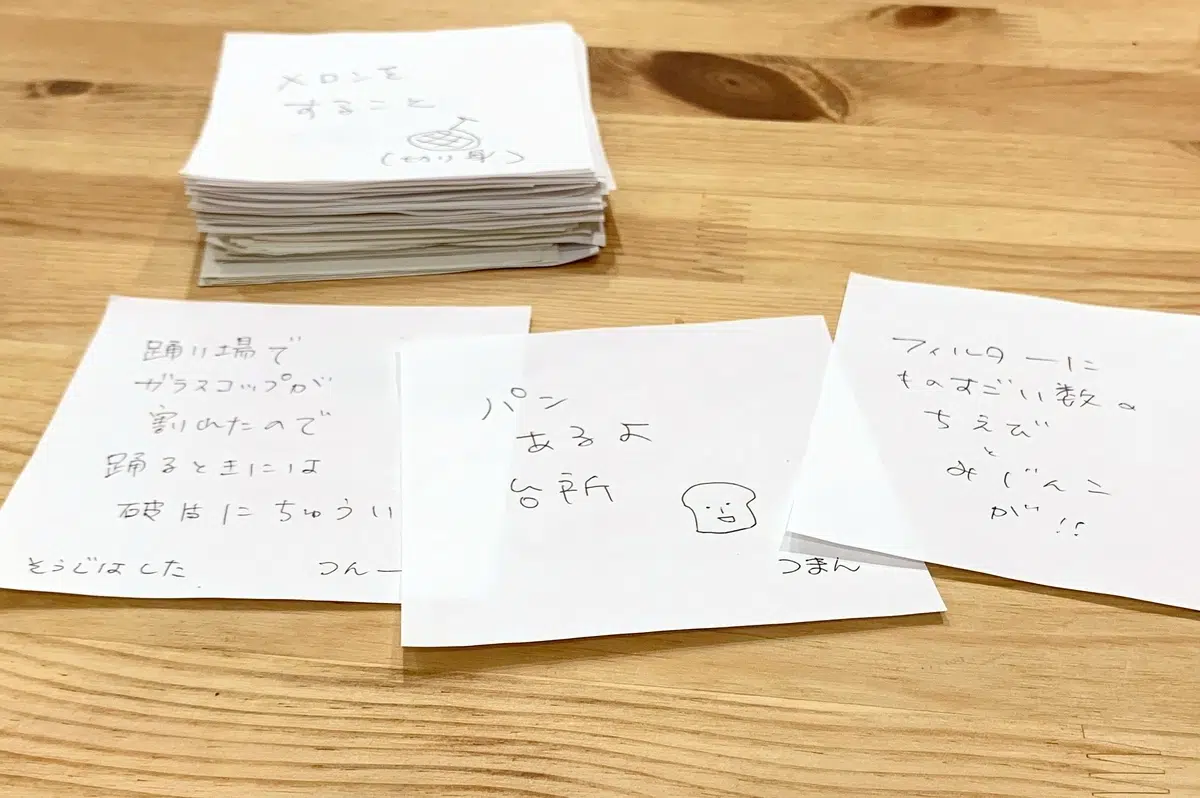 メロンを
すること
(切り身)
踊り場で
ガラスコップが
割れたので
踊るときには
破片にちゅうい
そうじはした
つんー
パン
あるよ
台所
つまん
フィルターに
ものすごい数の
ちえび
と
みじんこ
が!!